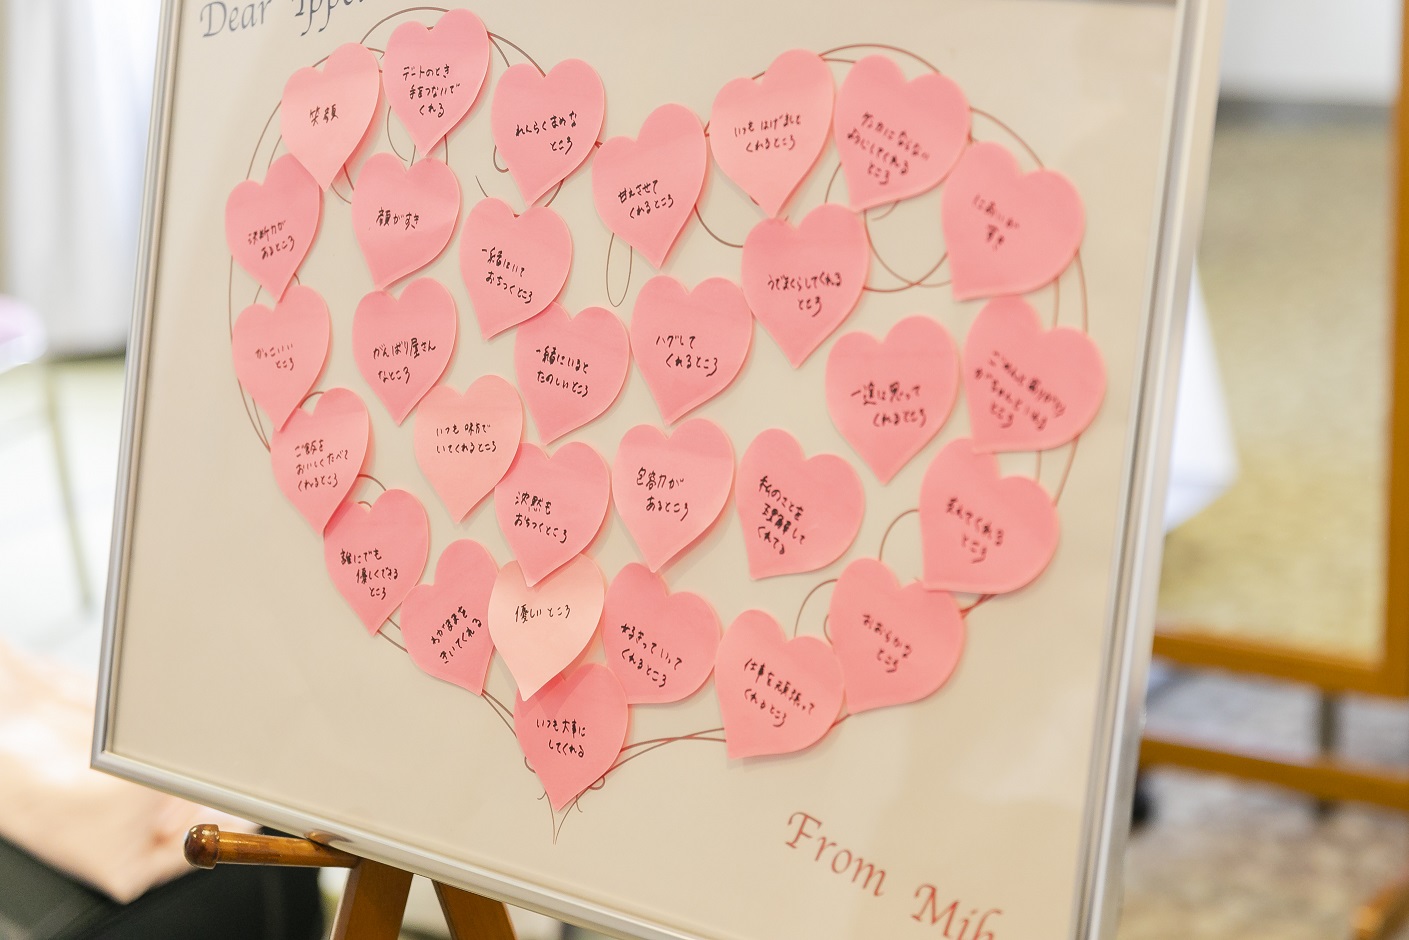 Dear Ippei
笑顔
デートのとき
手をつないで
くれる
れんらくまめな
ところ
甘えさせて
くれるところ
いつもはげまして
くれるところ
くれる
ところ
においが
すき
決断力が
あるところ
顔がすき
一緒にいて
おちつくところ
うでまくらしてくれる
ところ
かっこいい
ところ
がんばり屋さん
なところ
一緒にいると
たのしいところ
ハグして
くれるところ
一途に思って
くれるところ
ごめんとありがとう
がちゃんといえる
ところ
ご飯を
おいしくたべて
くれるところ
いつも味方で
いてくれるところ
沈黙も
おちつくところ
包容力が
あるところ
私のことを
理解して
くれてる
てくれる
ところ
誰にでも
優しくできる
ところ
わがままを
きいてくれる
優しいところ
好きっていって
くれるところ
仕事を頑張って
くれるところ
おおらかな
ところ
いつも大事に
してくれる
From Mih